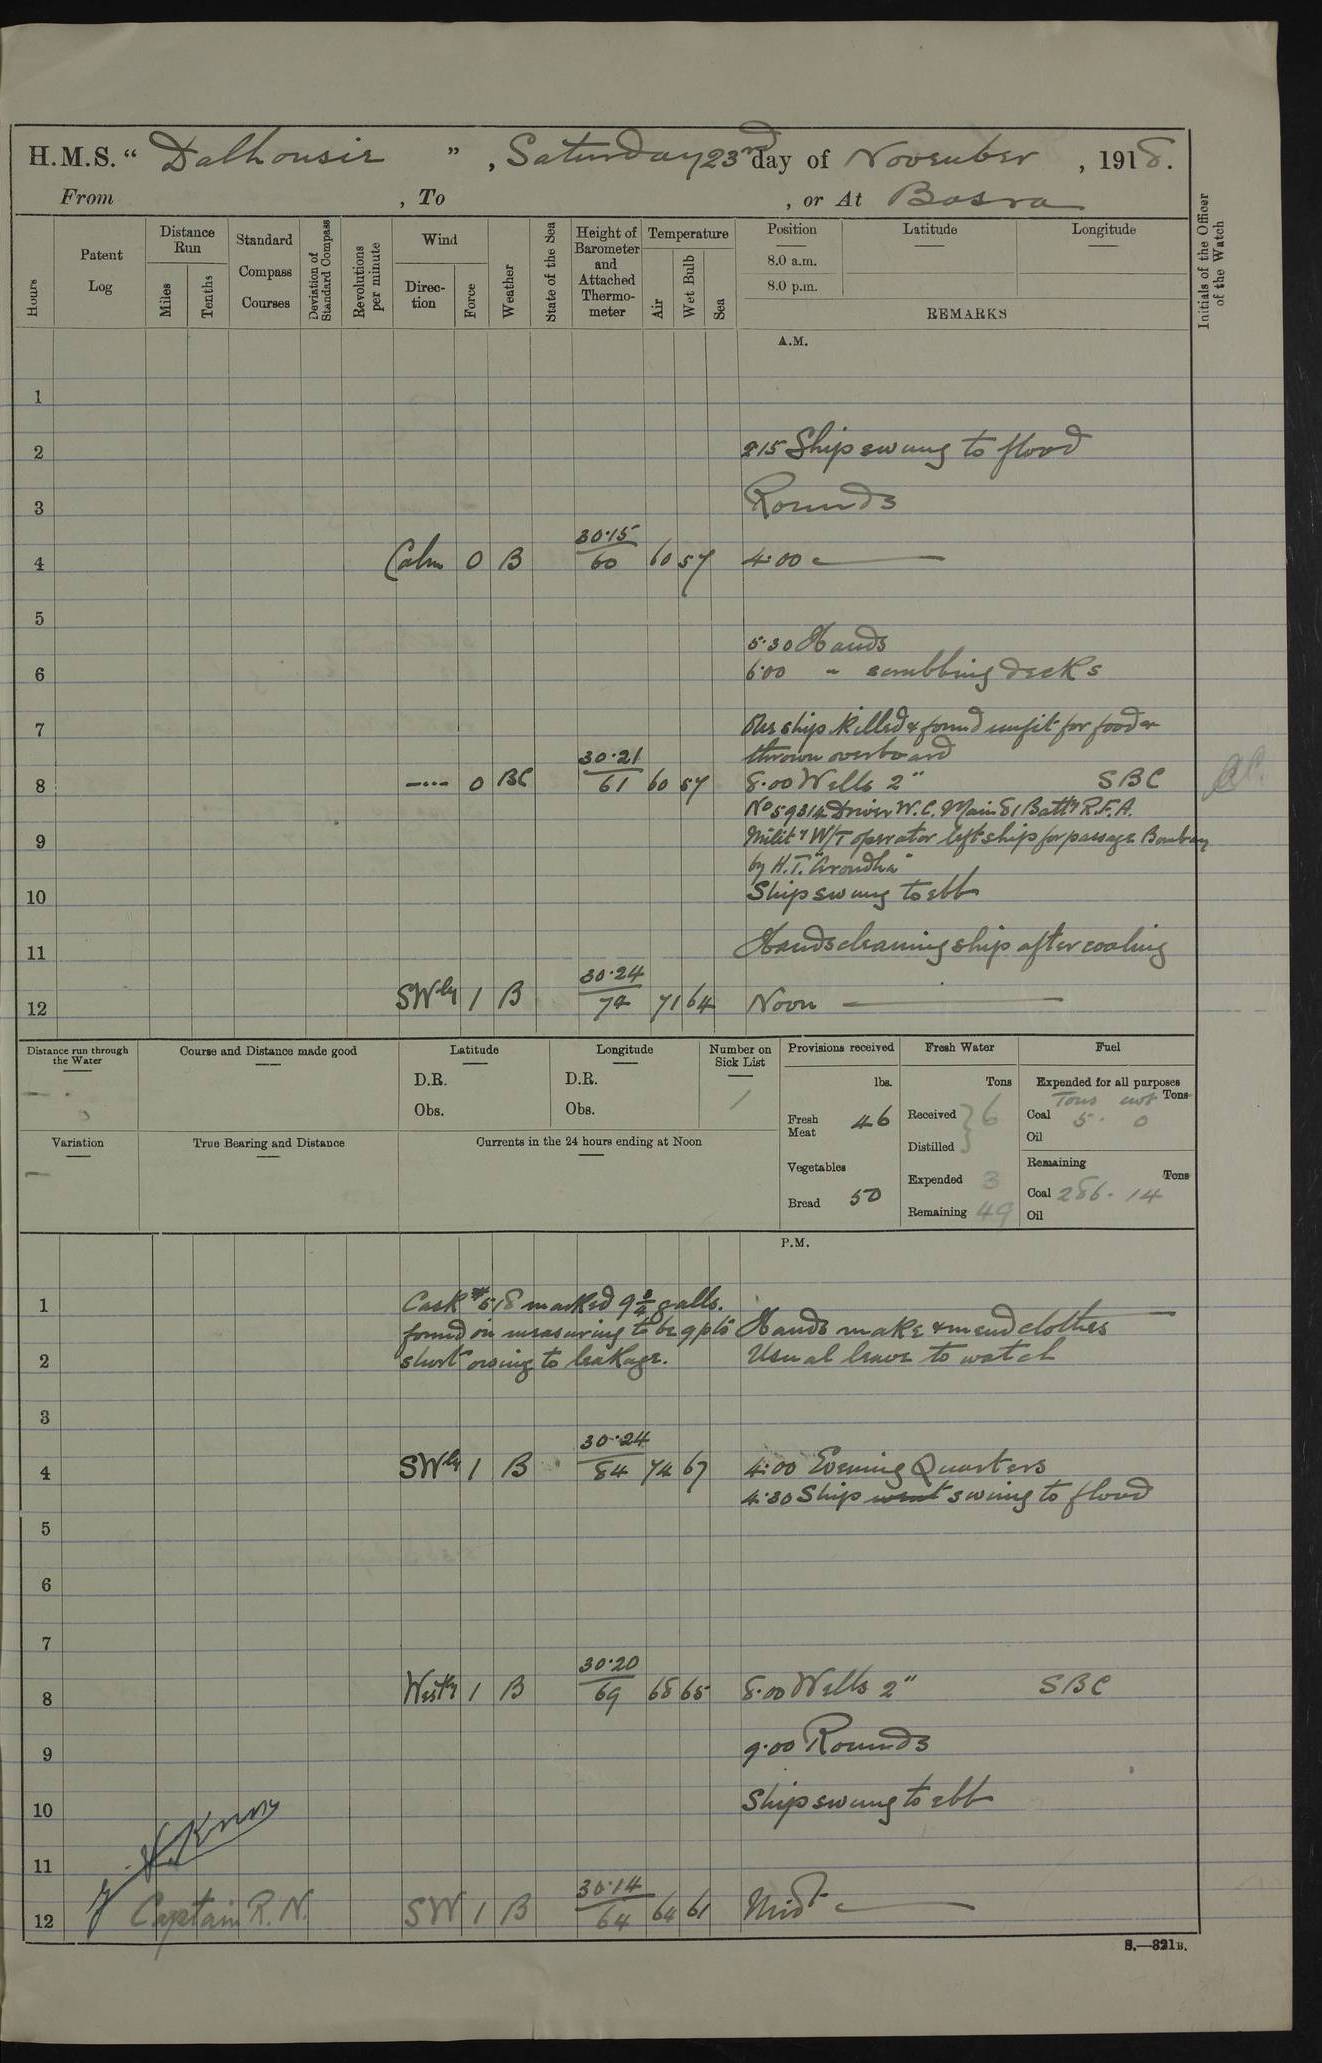 H.M.S. " Dalhousie ", Saturday 23rd day of November, 1918.
From , To , or At Basra
Hours
Patent Log
Distance Run
Miles
Tenths
Standard Compass Courses
Deviation of Standard Compass
Revolutions per minute
Wind
Direction
Force
Weather
State of the Sea
Height of Barometer and Attached Thermometer
Temperature
Air
Wet Bulb
Sea
Position
8.0 a.m.
8.0 p.m.
Latitude
Longitude
REMARKS
Initials of the Officer of the Watch
A.M.
1
2 2 15 Ship swung to flood
3 Rounds
4 Calm 0 B 30.15 60 60 57 4.00
5
5.30 Hands
6 6.00 " scrubbing decks
7 One ship killed & found unfit for food &
thrown overboard
8 -...- 0 BC 30.21 61 60 57 8.00 Wells 2" SBC
No 59314 Driver W.C. Main 81 Batty R.F.A.
9 Mility W/T operator left ship for passage Bombay
by H.T. "Arondha"
10 Ship swung to ebb
11 Hands cleaning ship after coaling
12 SWly 1 B 30.24 74 71 64 Noon
Distance run through the Water
Course and Distance made good
Latitude
D.R.
Obs.
Longitude
D.R.
Obs.
Number on Sick List
1
Provisions received
lbs.
Fresh Meat 46
Vegetables
Bread 50
Fresh Water
Tons
Received 6
Distilled
Expended 3
Remaining 49
Fuel
Expended for all purposes
Tons cwt Tons
Coal 5. 0
Oil
Remaining
Tons
Coal 286. 14
Oil
Variation
True Bearing and Distance
Currents in the 24 hours ending at Noon
P.M.
1 Cask # 518 marked 9 3/4 galls.
found on measuring to be 9 pts Hands make & mend clothes
2 short owing to leakage. Usual leave to watch
3
4 SWly 1 B 30.24 84 74 67 4.00 Evening Quarters
4.30 Ship went swung to flood
5
6
7
8 Westly 1 B 30.20 69 68 65 8.00 Wells 2" SBC
9 9.00 Rounds
10 Ship swung to ebb
11
12 Captain R.N. SW 1 B 30.14 64 64 61 Midt
S.—321B.